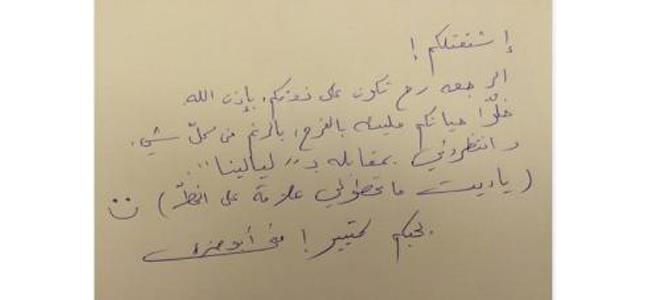 إشتقتلكم !
الرجعه رح تكون على ذوقكم، بإذن الله
خلّوا حياتكم مليئه بالفرح، بالرغم من كلّ شي.
وانتظروني بمقابله بـ "ليالينا".
(ياريت ما تحطولي علامة على الخطّ) ت̈
بحبكم كتيير ! منى أبو حمزه